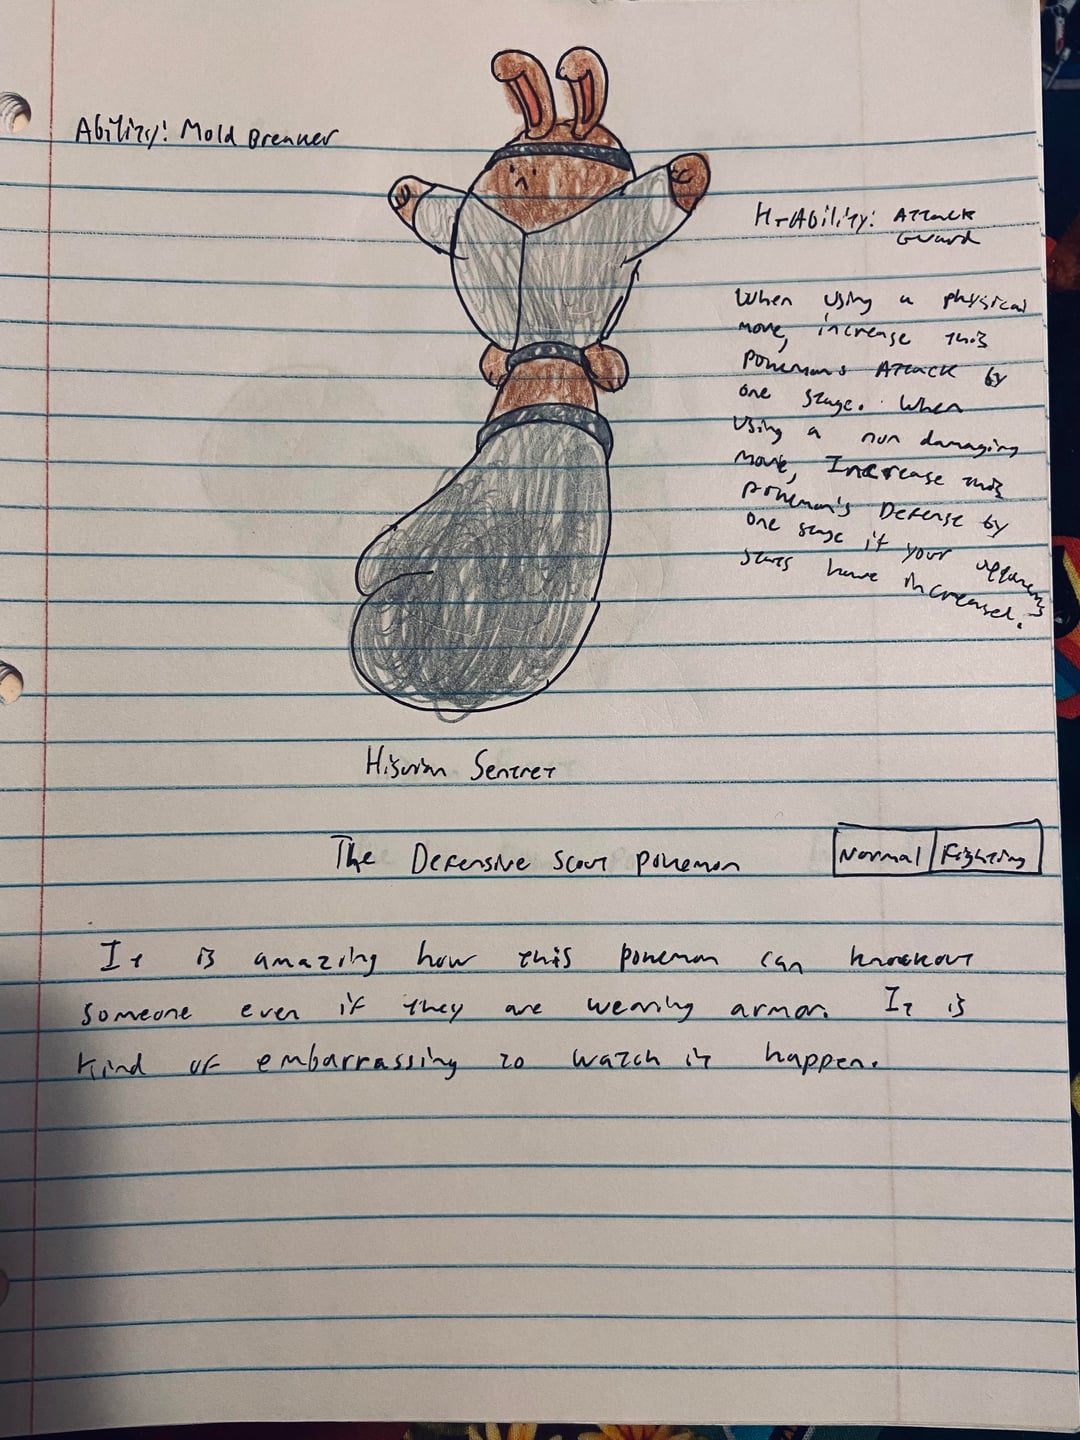 Ability: Mold Breaker
H-Ability: Attack
Guard
When using a physical
move, increase this
pokemon's Attack by
one stage. When
using a non damaging
move, Increase this
pokemon's Defense by
one stage if your opponent's
stats have increased.
Hisuian Sentret
The Defensive Scout pokemon
Normal Fighting
It is amazing how this pokemon can knockout
someone even if they are wearing armor. It is
kind of embarrassing to watch it happen.